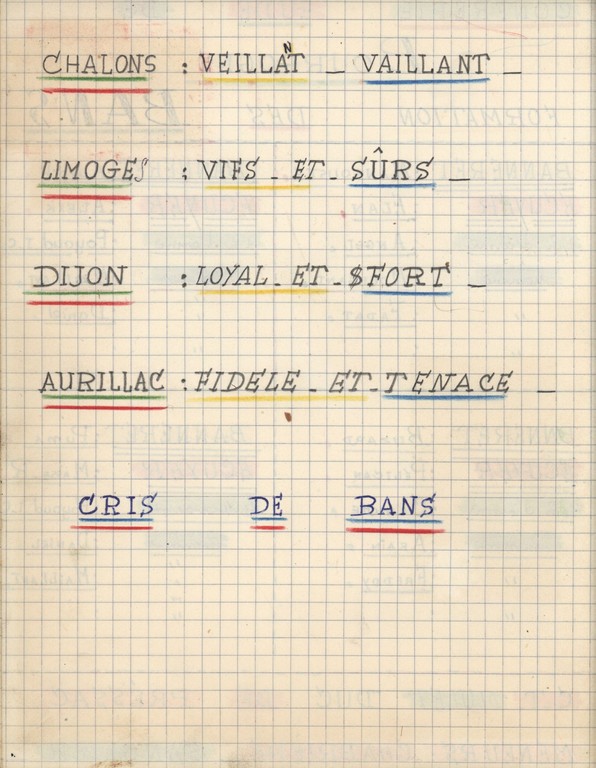 CHALONS : VEILLANT _ VAILLANT _
LIMOGES : VIFS _ ET _ SÛRS _
DIJON : LOYAL _ ET _ FORT _
AURILLAC : FIDELE _ ET _ TENACE _
CRIS DE BANS